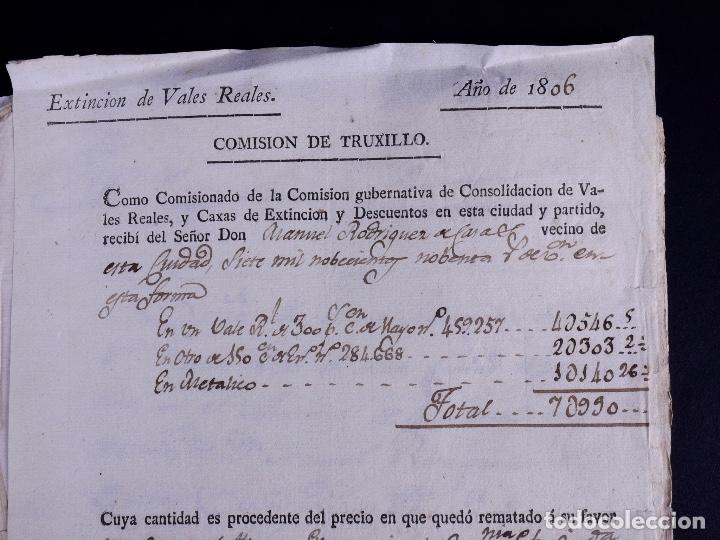 Extincion de Vales Reales.
Año de 1806
COMISION DE TRUXILLO.
Como Comisionado de la Comision gubernativa de Consolidacion de Va-
les Reales, y Caxas de Extincion y Descuentos en esta ciudad y partido,
recibí del Señor Don Manuel Rodriguez de vecino de
esta Ciudad, Siete mil nobecientos nobenta en
esta forma
En un Vale Rl. de 300 de Mayo nº. 459.257 4546 5
En Otro de 150 nº. 284.668 2303 2
En Metalico 1140 26
Total 7990
Cuya cantidad es procedente del precio en que quedó rematado á su favor
todocoleccion.net